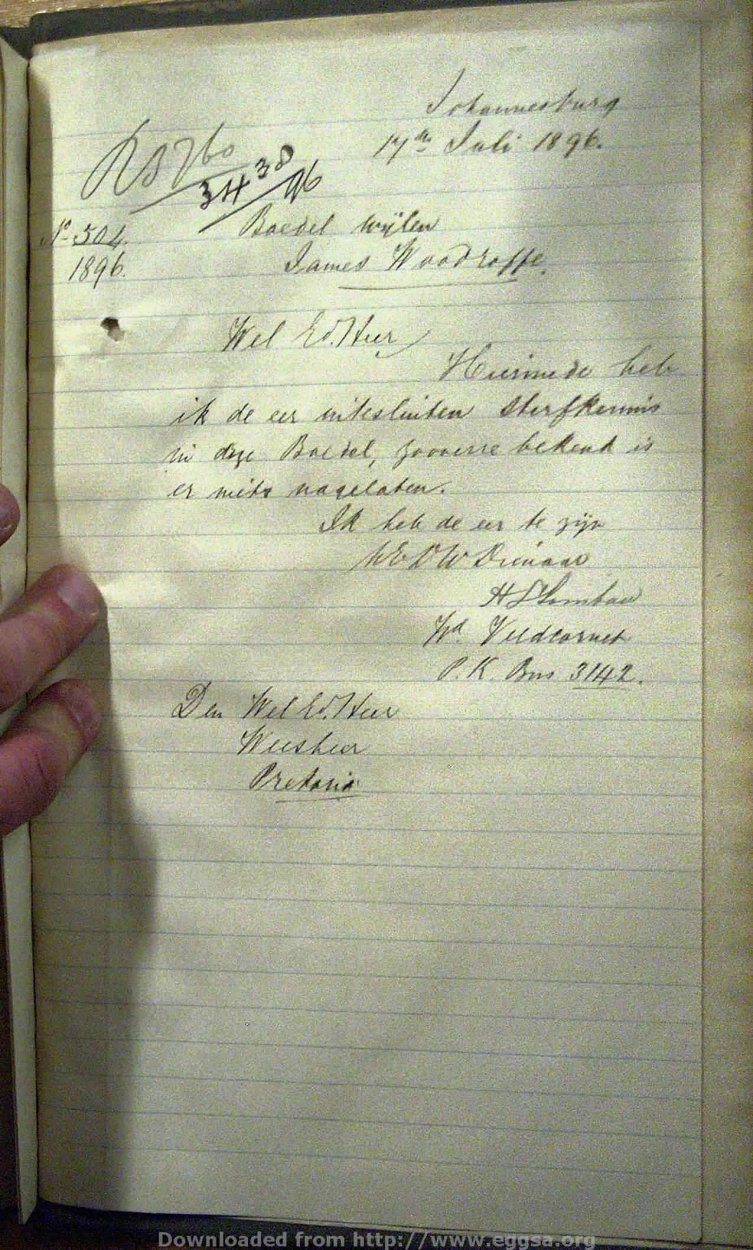 Johannesburg
17de Juli 1896.
3438/96
No 504
1896.
Boedel wijlen
James Woodroffe.
Wel Ed. Heer
Hiermede heb
ik de eer uitesluiten Sterfkennis
in deze Boedel, zooverre bekend is
er niets nagelaten.
Ik heb de eer te zijn
UEDW Dienaar
H S Lombard
Wd. Veldcornet
P.K. Bus 3142.
Den Wel Ed. Heer
Weesheer
Pretoria
Downloaded from http://www.eggsa.org